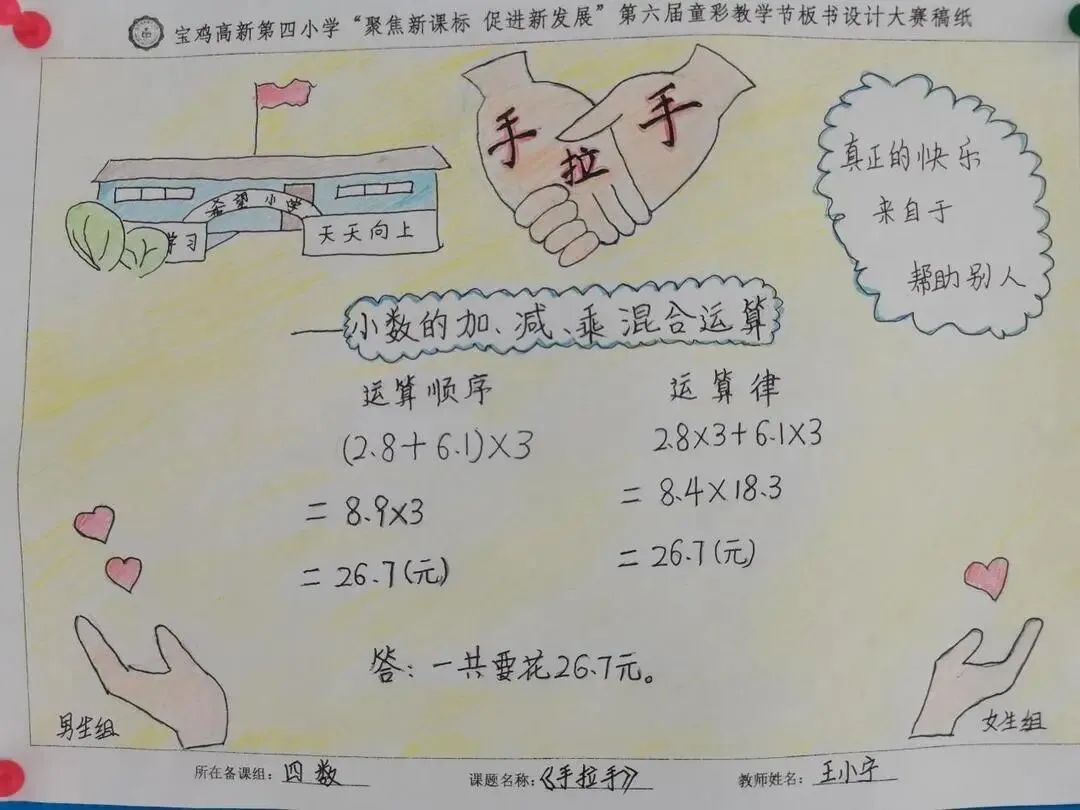 宝鸡高新第四小学“聚焦新课标 促进新发展”第六届童彩教学节板书设计大赛稿纸
手拉手
希望小学
学习
天天向上
真正的快乐
来自于
帮助别人
——小数的加、减、乘混合运算
运算顺序
(2.8+6.1)×3
=8.9×3
=26.7(元)
运算律
2.8×3+6.1×3
=8.4×18.3
=26.7(元)
答:一共要花26.7元。
男生组
女生组
所在备课组:四数 课题名称:《手拉手》 教师姓名:王小宁